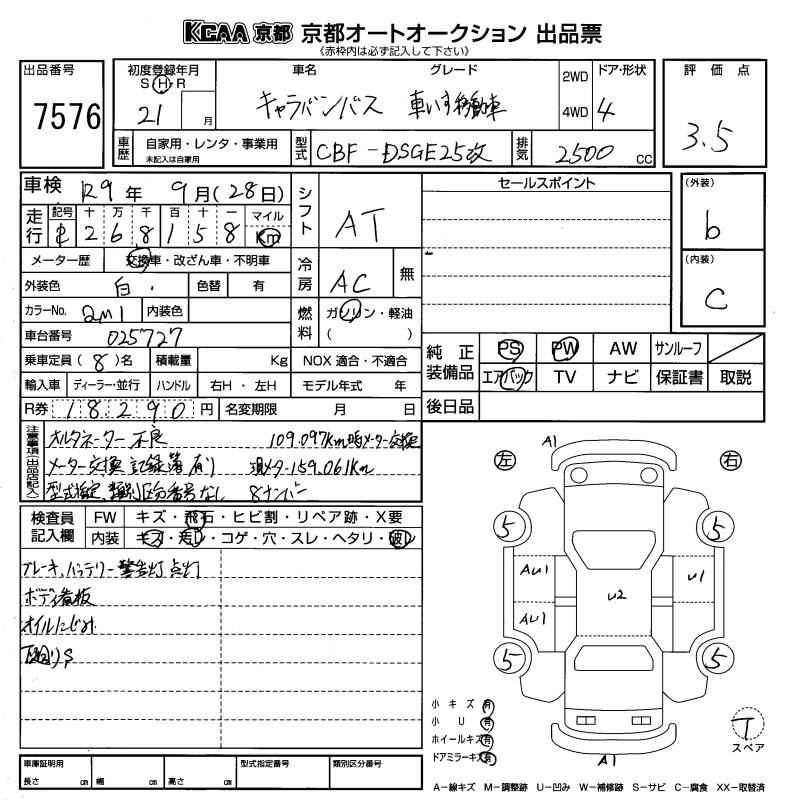 KCAA 京都 京都オートオークション 出品票
《赤枠内は必ず記入して下さい》
出品番号 7576
初度登録年月 S・H・R 21 月
車名 グレード キャラバンバス 車いす移動車
2WD 4WD
ドア・形状 4
評価点 3.5
車歴 自家用・レンタ・事業用 未記入は自家用
型式 CBF-DSGE25改
排気 2500 CC
車検 R9年 9月(28日)
走行 記号 十 万 千 百 十 一 マイル Km
268158
シフト AT
セールスポイント
(外装) b
(内装) C
メーター歴 交換車・改ざん車・不明車
冷房 AC 無
外装色 白 色替 有
カラーNo. QM1 内装色
燃料 ガソリン・軽油 ( )
車台番号 025727
乗車定員(8)名 積載量 Kg NOX 適合・不適合
輸入車 ディーラー・並行 ハンドル 右H・左H モデル年式 年
R券 18290円 名変期限 月 日
純正装備品 PS PW AW サンルーフ
エアバック TV ナビ 保証書 取説
後日品
注意事項(出品店記入)
オルタネーター不良 109.097Km時メーター交換
メーター交換記録簿有り 現メーター159.061Km
型式指定 類別区分番号なし 8ナンバー
検査員記入欄 FW キズ・飛石・ヒビ割・リペア跡・X要
内装 キズ・汚レ・コゲ・穴・スレ・ヘタリ・破レ
ブレーキ、バッテリー警告灯点灯
ボディ看板
オイルにじみ
下廻りS
左 A1 右
5 5
AU1 U2 U1
AU1
5 5
A1
小キズ 有
小U 有
ホイールキズ 有
ドアミラーキズ 有
T スペア
車庫証明用 長さ cm 幅 cm 高さ cm
型式指定番号 類別区分番号
A-線キズ M-調整跡 U-凹み W-補修跡 S-サビ C-腐食 XX-取替済